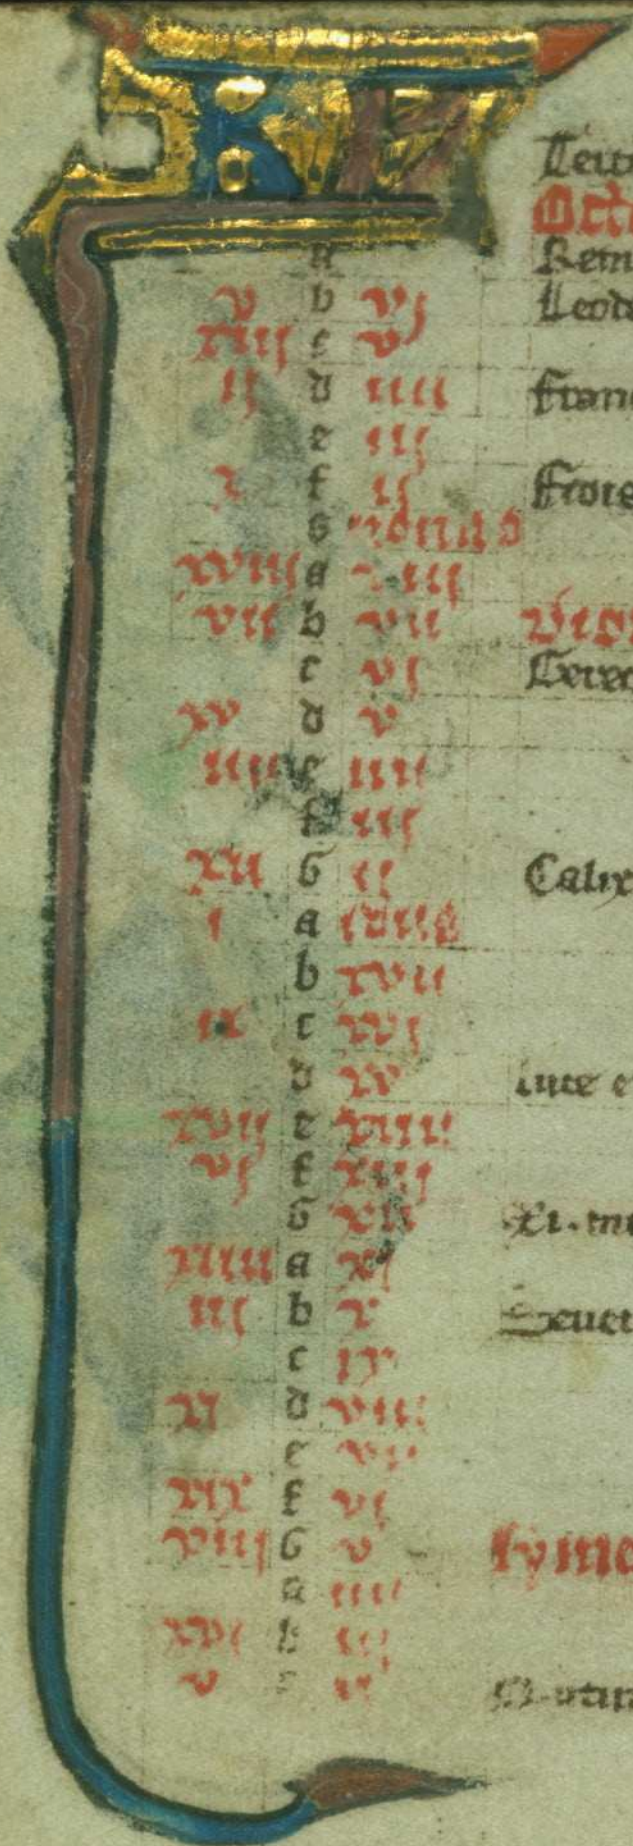 KL
Octo
a Remi
v b vj Leod
xiij c v
ij d iiij Franc
e iij
x f ij
G nonas
xviij a viij
vii b vii
c vj
xv d v
iiij e iiii
f iij
xii G ii Calix
i a idus
b xvii
ix c xvj
d xv luce e
xvij e xiiii
vj f xiij
G xii xi. m
xiiii a xj
iij b x Seuer
c ix
xi d viii
e vii
xix f vj
viij G v Symo
a iiii
xvi b iij
v c ii